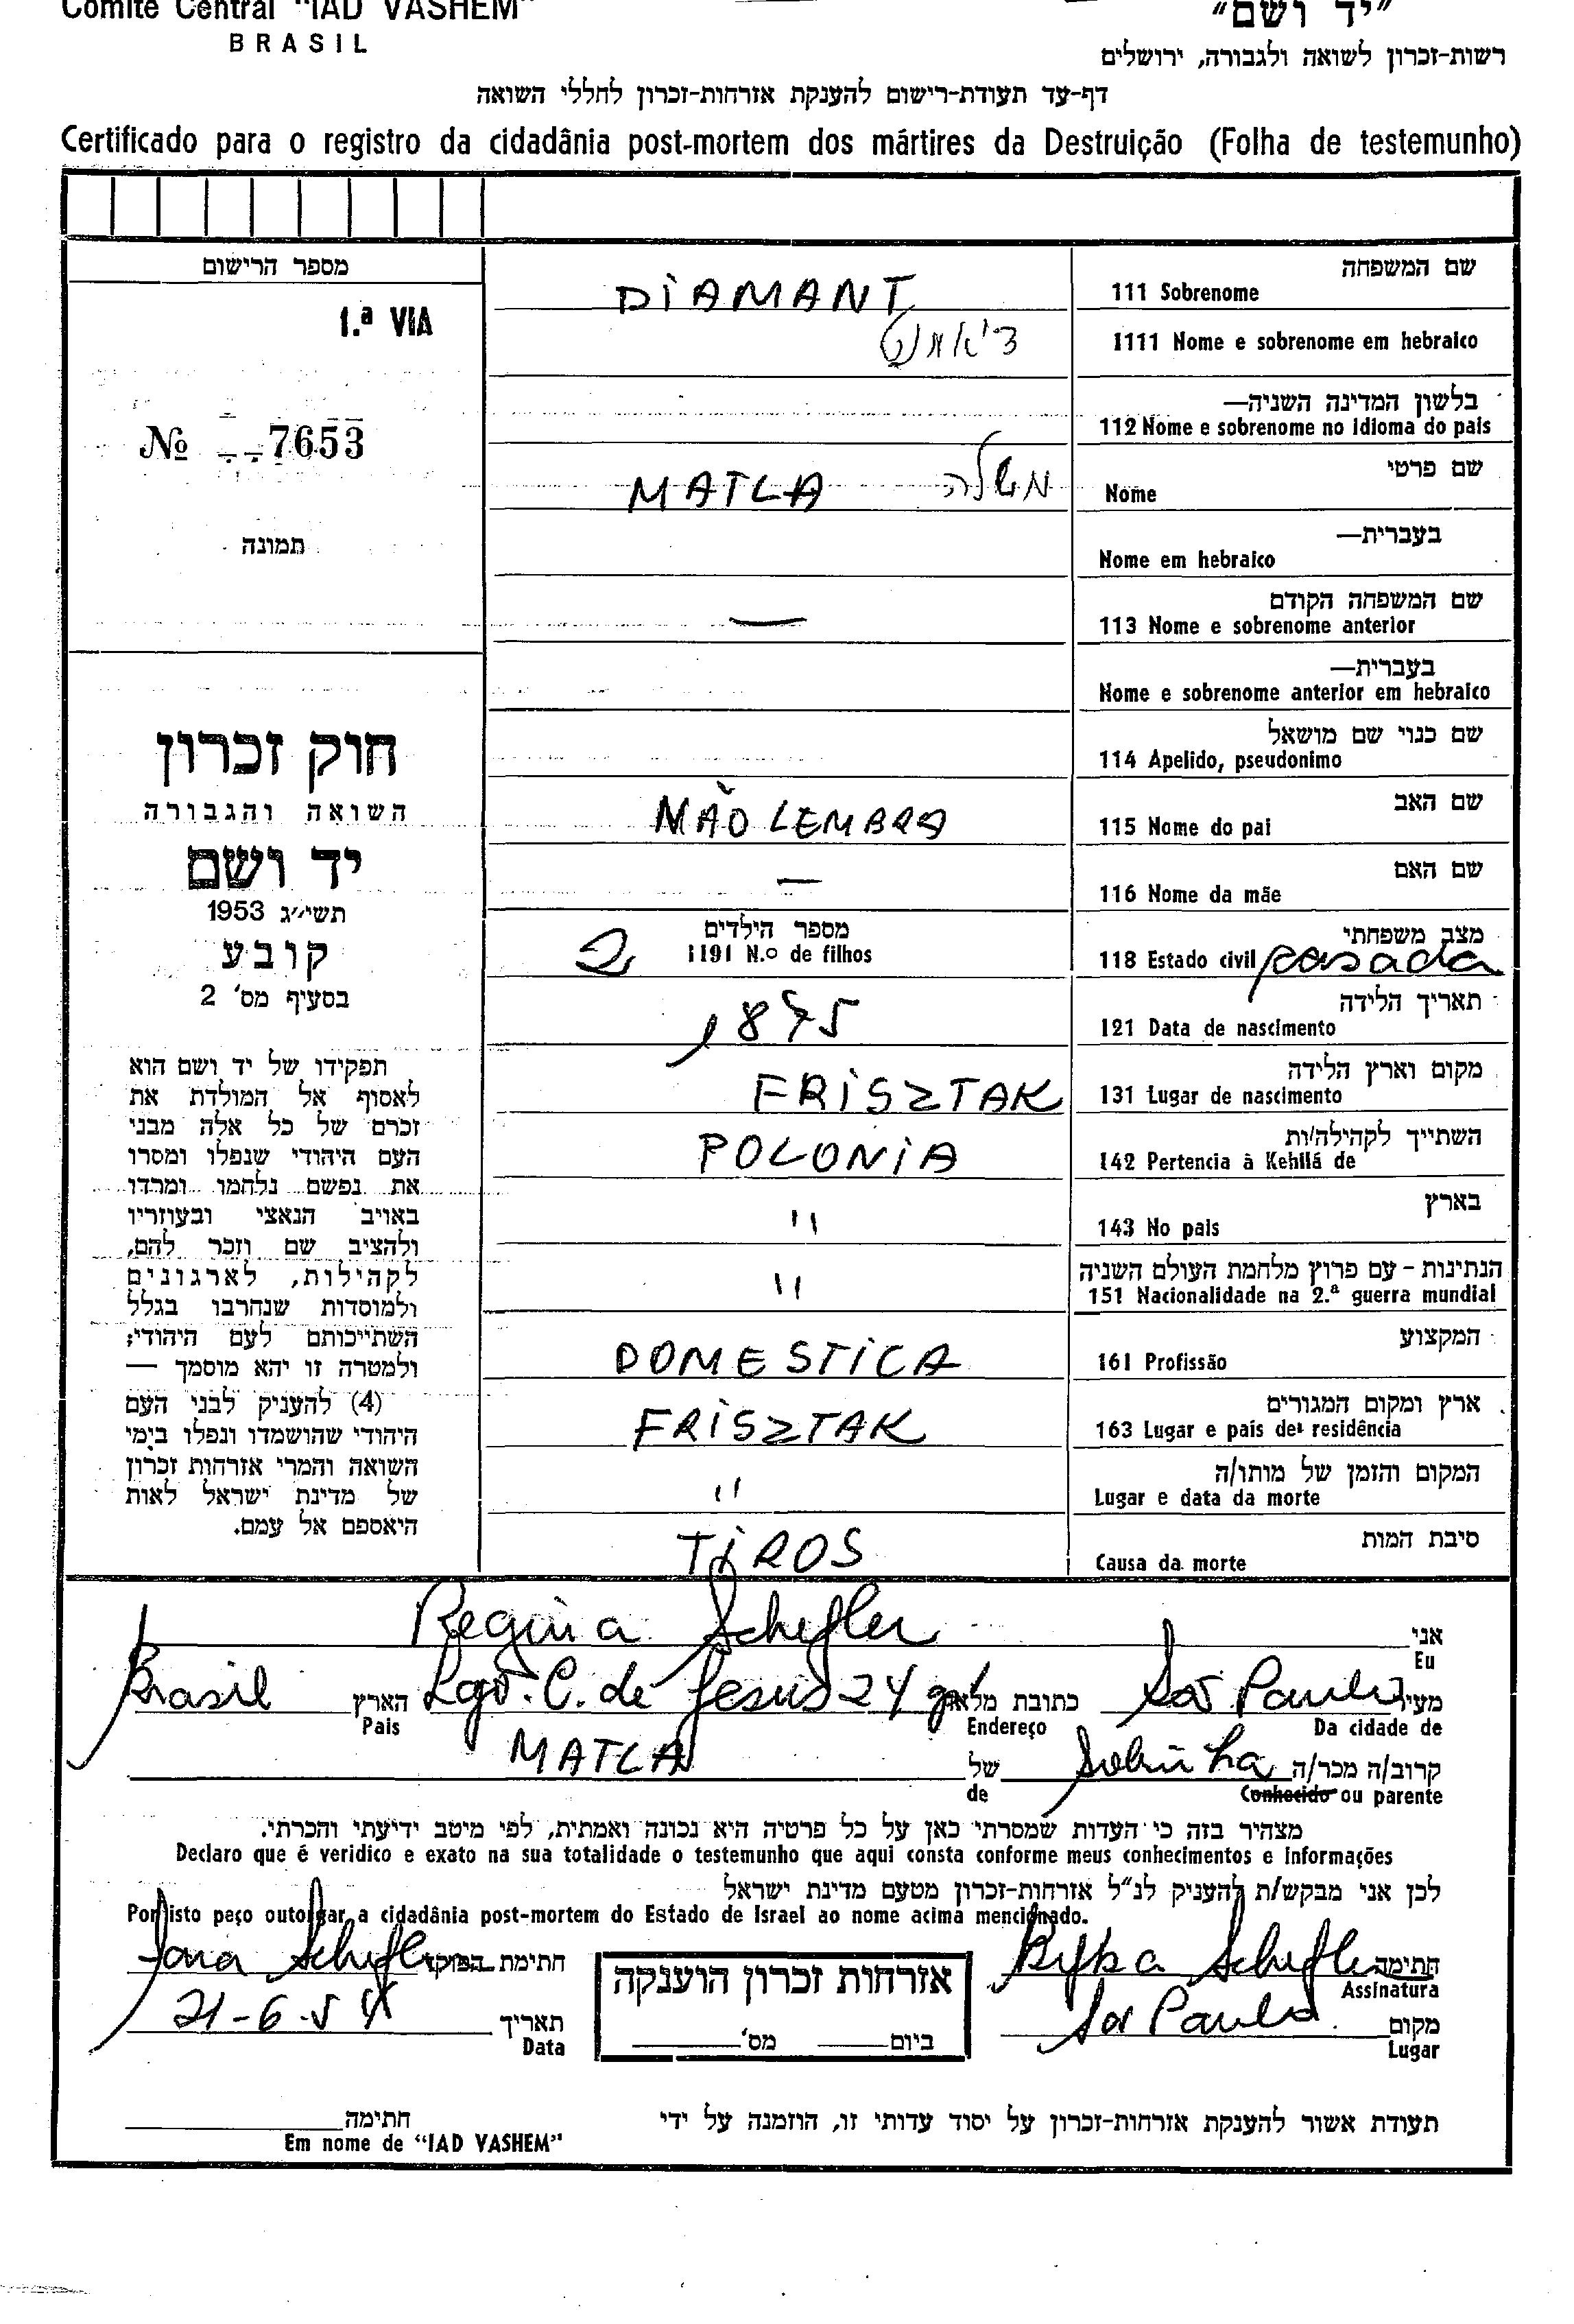 Comité Central "IAD VASHEM"
BRASIL
"יד ושם"
רשות-זכרון לשואה ולגבורה, ירושלים
דף-עד תעודת-רישום להענקת אזרחות-זכרון לחללי השואה
Certificado para o registro da cidadânia post-mortem dos mártires da Destruição (Folha de testemunho)
מספר הרישום
1.ª VIA
№ 7653
תמונה
חוק זכרון
השואה והגבורה
יד ושם
תשי״ג 1953
קובע
בסעיף מס' 2
תפקידו של יד ושם הוא
לאסוף אל המולדת את
זכרם של כל אלה מבני
העם היהודי שנפלו ומסרו
את נפשם נלחמו ומרדו
באויב הנאצי ובעוזריו
ולהציב שם וזכר להם,
לקהילות, לארגונים
ולמוסדות שנחרבו בגלל
השתייכותם לעם היהודי;
ולמטרה זו יהא מוסמך —
(4) להעניק לבני העם
היהודי שהושמדו ונפלו בימי
השואה והמרי אזרחות זכרון
של מדינת ישראל לאות
היאספם אל עמם.
שם המשפחה
111 Sobrenome DIAMANT
1111 Nome e sobrenome em hebraico דיאמנט
בלשון המדינה השניה—
112 Nome e sobrenome no idioma do pais
שם פרטי
Nome MATLA מטלה
בעברית—
Nome em hebraico
שם המשפחה הקודם
113 Nome e sobrenome anterior —
בעברית—
Nome e sobrenome anterior em hebraico
שם כנוי שם מושאל
114 Apelido, pseudonimo
שם האב
115 Nome do pai NÃO LEMBRA
שם האם
116 Nome da mãe —
מצב משפחתי
118 Estado civil casada
מספר הילדים
1191 N.º de filhos 2
תאריך הלידה
121 Data de nascimento 1875
מקום וארץ הלידה
131 Lugar de nascimento FRISZTAK
השתייך לקהילה/ות
142 Pertencia à Kehilá de POLONIA
בארץ
143 No pais "
הנתינות - עם פרוץ מלחמת העולם השניה
151 Nacionalidade na 2.ª guerra mundial "
המקצוע
161 Profissão DOMESTICA
ארץ ומקום המגורים
163 Lugar e pais de residência FRISZTAK
המקום והזמן של מותו/ה
Lugar e data da morte "
סיבת המות
Causa da morte TIROS
אני
Eu Regina Schefler
מעיר Sao Paulo כתובת מלאה Lgo. C. de Jesus 24 הארץ Brasil
Da cidade de Endereço Pais
קרוב/ה מכר/ה Sobinha של MATLA
Conhecido ou parente de
מצהיר בזה כי העדות שמסרתי כאן על כל פרטיה היא נכונה ואמתית, לפי מיטב ידיעתי והכרתי.
Declaro que é veridico e exato na sua totalidade o testemunho que aqui consta conforme meus conhecimentos e informações
לכן אני מבקש/ת להעניק לנ"ל אזרחות-זכרון מטעם מדינת ישראל
Por isto peço outorgar a cidadânia post-mortem do Estado de Israel ao nome acima mencionado.
חתימה Schefler
Assinatura
חתימת הפוקד Schefler
מקום Sao Paulo
Lugar
תאריך 21-6-54
Data
אזרחות זכרון הוענקה
ביום מס'
תעודת אשור להענקת אזרחות-זכרון על יסוד עדותי זו, הוזמנה על ידי
חתימה
Em nome de "IAD VASHEM"